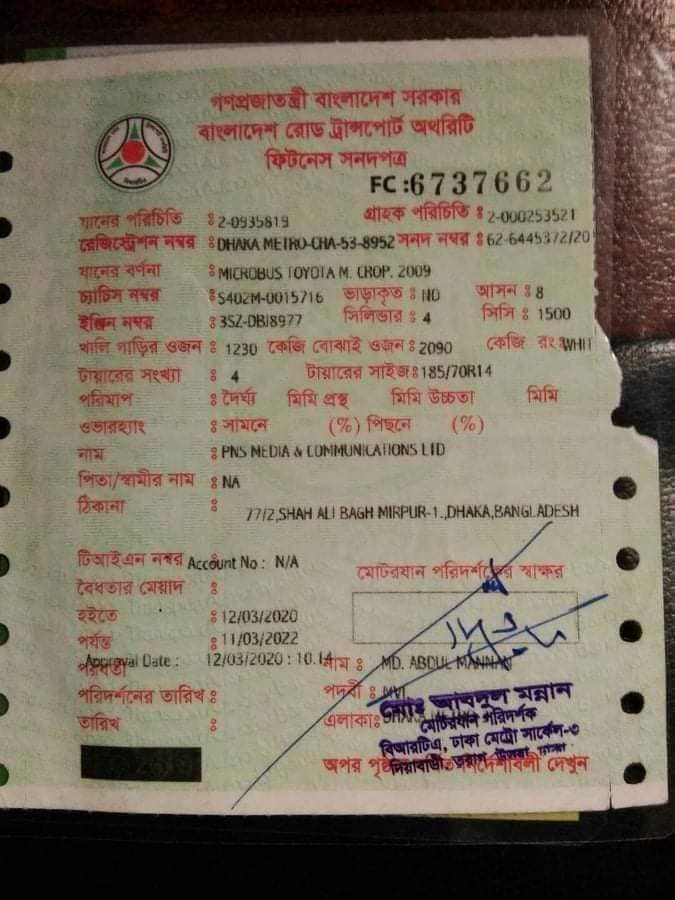 গণপ্রজাতন্ত্রী বাংলাদেশ সরকার
বাংলাদেশ রোড ট্রান্সপোর্ট অথরিটি
ফিটনেস সনদপত্র
FC :6737662
যানের পরিচিতি : 2-0935819 গ্রাহক পরিচিতি : 2-000253521
রেজিস্ট্রেশন নম্বর : DHAKA METRO-CHA-53-8952 সনদ নম্বর : 62-6445372/20
যানের বর্ণনা : MICROBUS TOYOTA M. CROP. 2009
চ্যাচিস নম্বর : S402M-0015716 ভাড়াকৃত : NO আসন : 8
ইঞ্জিন নম্বর : 3SZ-DBI8977 সিলিন্ডার : 4 সিসি : 1500
খালি গাড়ির ওজন : 1230 কেজি বোঝাই ওজন : 2090 কেজি রং : WHIT
টায়ারের সংখ্যা : 4 টায়ারের সাইজ : 185/70R14
পরিমাপ : দৈর্ঘ্য মিমি প্রস্থ মিমি উচ্চতা মিমি
ওভারহ্যাং : সামনে (%) পিছনে (%)
নাম : PNS MEDIA & COMMUNICATIONS LTD
পিতা/স্বামীর নাম : NA
ঠিকানা : 77/2,SHAH ALI BAGH MIRPUR-1.,DHAKA,BANGLADESH
টিআইএন নম্বর Account No : N/A
মোটরযান পরিদর্শকের স্বাক্ষর
বৈধতার মেয়াদ :
হইতে : 12/03/2020
পর্যন্ত : 11/03/2022
Approval Date : 12/03/2020 : 10.14 নাম : MD. ABDUL MANNAN
পরবর্তী
পরিদর্শনের তারিখ : পদবী : MVI
তারিখ : এলাকা :
মোঃ আবদুল মন্নান
মোটরযান পরিদর্শক
বিআরটিএ, ঢাকা মেট্রো সার্কেল-৩
দিয়াবাড়ী, ঢাকা
অপর পৃষ্ঠায় দেখুন